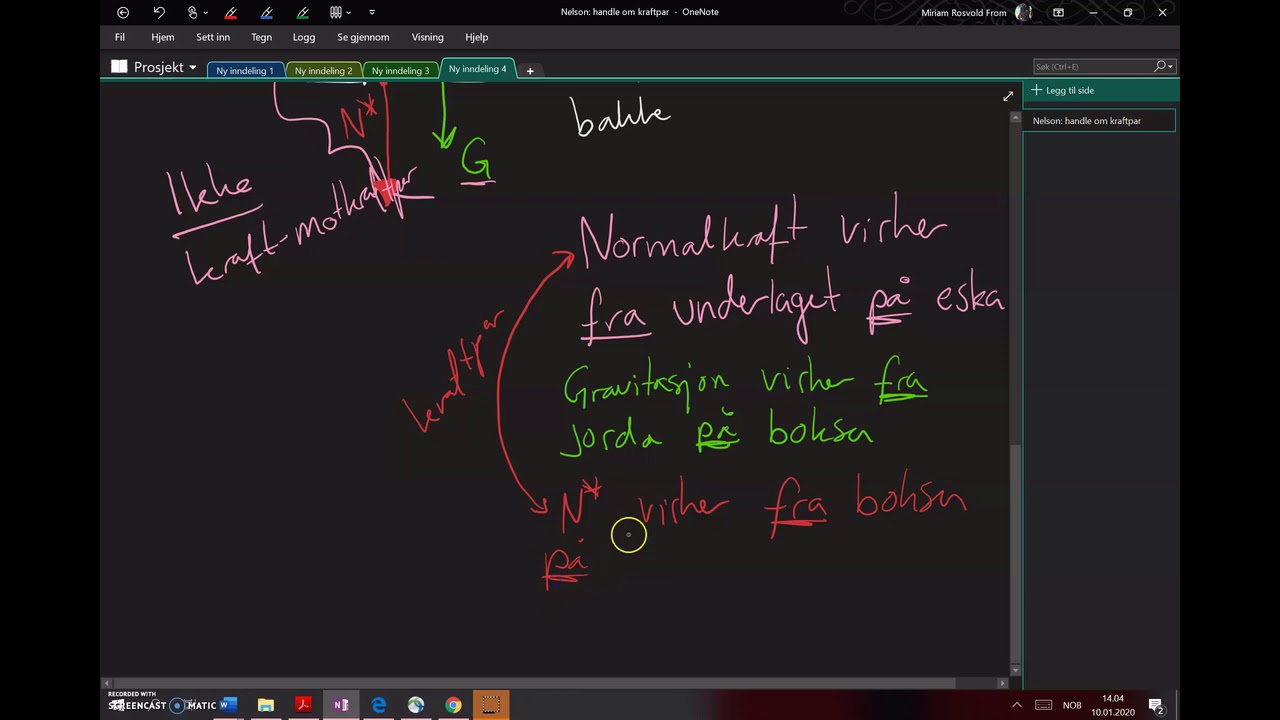 Nelson: handle om kraftpar - OneNote
Miriam Rosvold From
Fil Hjem Sett inn Tegn Logg Se gjennom Visning Hjelp
Prosjekt
Ny inndeling 1
Ny inndeling 2
Ny inndeling 3
Ny inndeling 4
+
Søk (Ctrl+E)
Legg til side
Nelson: handle om kraftpar
N*
G
bakke
Ikke
kraft-motkraftpar
Normalkraft virker
fra underlaget på eska
kraftpar
Gravitasjon virker fra
jorda på boksen
N* virker fra boksen
på
RECORDED WITH
SCREENCAST MATIC
NOB
14.04
10.01.2020
2